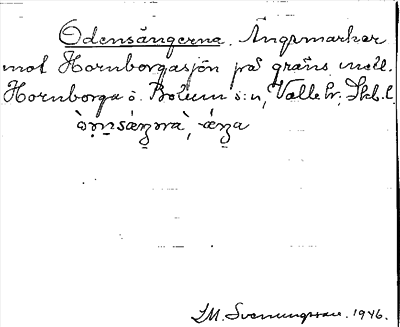 Odensängerna. Ängsmarker
mot Hornborgasjön på gräns mell.
Hornborga o. Bolum s:n, Valle hr, Skb. l.
S.M. Svenungsson. 1946.